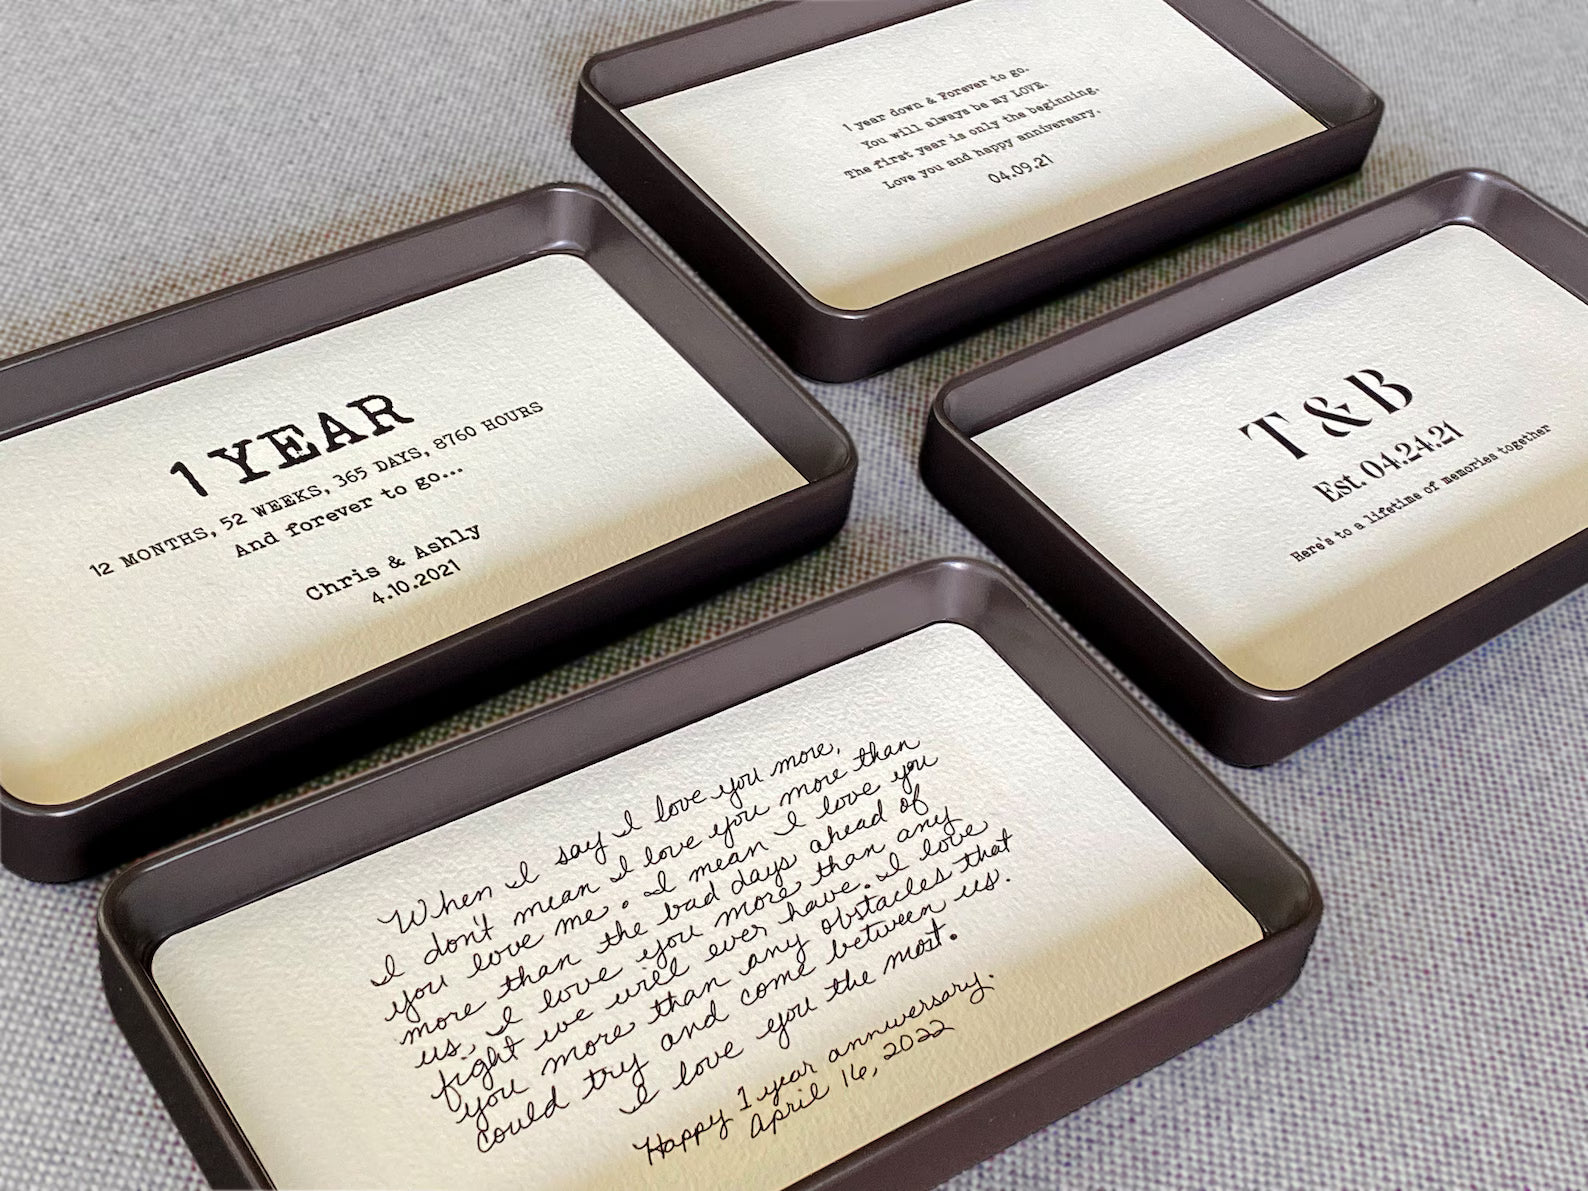 1 year down & Forever to go.
You will always be my LOVE.
The first year is only the beginning.
Love you and happy anniversary.
04.09.21
1 YEAR
12 MONTHS, 52 WEEKS, 365 DAYS, 8760 HOURS
And forever to go...
Chris & Ashly
4.10.2021
T & B
Est. 04.24.21
Here's to a lifetime of memories together
When I say I love you more,
I don't mean I love you more than
you love me. I mean I love you
more than the bad days ahead of
us, I love you more than any
fight we will ever have. I love
you more than any obstacles that
could try and come between us.
I love you the most.
Happy 1 year anniversary.
April 16, 2022